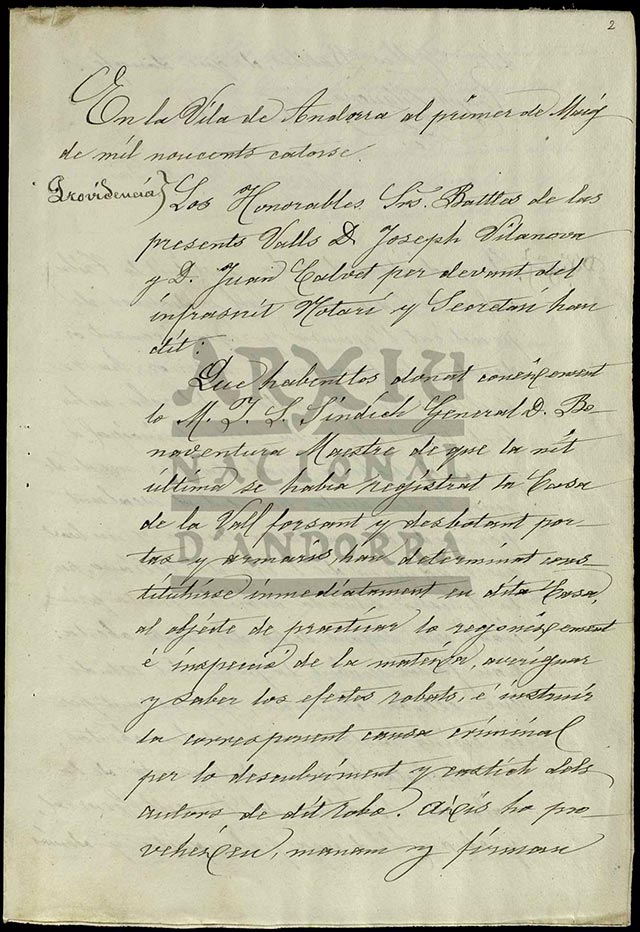 2
En la Vila de Andorra al primer de Maig
de mil noucents catorse.
Providencia} Los Honorables Srs. Batlles de las
presents Valls D. Joseph Vilanova
y D. Juan Calvet per devant del
infrascrit Notari y Secretari han
dit:
Que habentlos donat coneixement
lo M. I. S. Sindich General D. Bo-
naventura Maestre de que la nit
última se habia registrat la Casa
de la Vall forsant y desbotant por-
tas y armaris, han determinat cons-
titubirse inmediatament en dita Casa,
al objecte de practicar lo regoneixement
é inspecció de la mateixa, averiguar
y saber los efectes robats, é instruir
la corresponent causa criminal
per lo descubriment y castich dels
autors de dit robo. Aixis ho pro-
veheixen, manan y firman
ARXIU
NACIONAL
D'ANDORRA